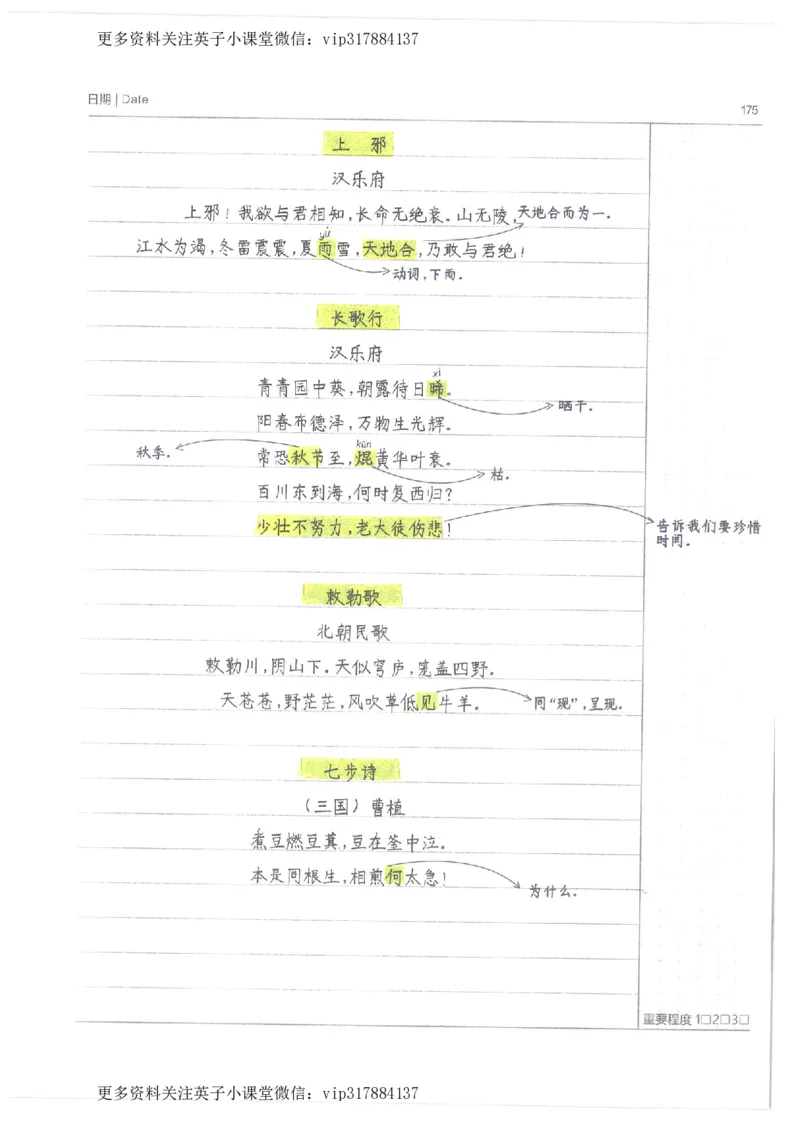 更多资料关注英子小课堂微信：vip317884137
日期 | Date
175
上 邪
汉乐府
上邪！我欲与君相知，长命无绝衰。山无陵，天地合而为一。
yù
江水为竭，冬雷震震，夏雨雪，天地合，乃敢与君绝！
动词，下雨。
长歌行
汉乐府
xī
青青园中葵，朝露待日晞。
晒干。
阳春布德泽，万物生光辉。
kūn
秋季。
常恐秋节至，焜黄华叶衰。
枯。
百川东到海，何时复西归？
少壮不努力，老大徒伤悲！
告诉我们要珍惜
时间。
敕勒歌
北朝民歌
敕勒川，阴山下。天似穹庐，笼盖四野。
天苍苍，野茫茫，风吹草低见牛羊。
同“现”，呈现。
七步诗
（三国）曹植
煮豆燃豆萁，豆在釜中泣。
本是同根生，相煎何太急！
为什么。
重要程度 1□2□3□
更多资料关注英子小课堂微信：vip317884137